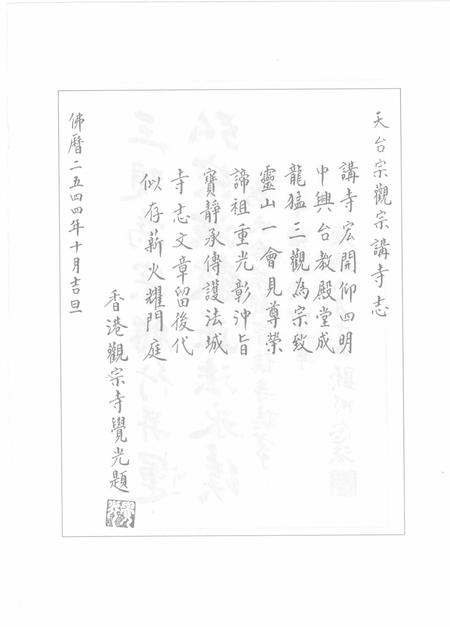 天台宗觀宗講寺志
講寺宏開仰四明
中興台教殿堂成
龍猛三觀為宗致
靈山一會見尊榮
諦祖重光彰沖旨
寶靜承傳護法城
寺志文章留後代
似存薪火耀門庭
香港觀宗寺覺光題
佛曆二五四四年十月吉旦